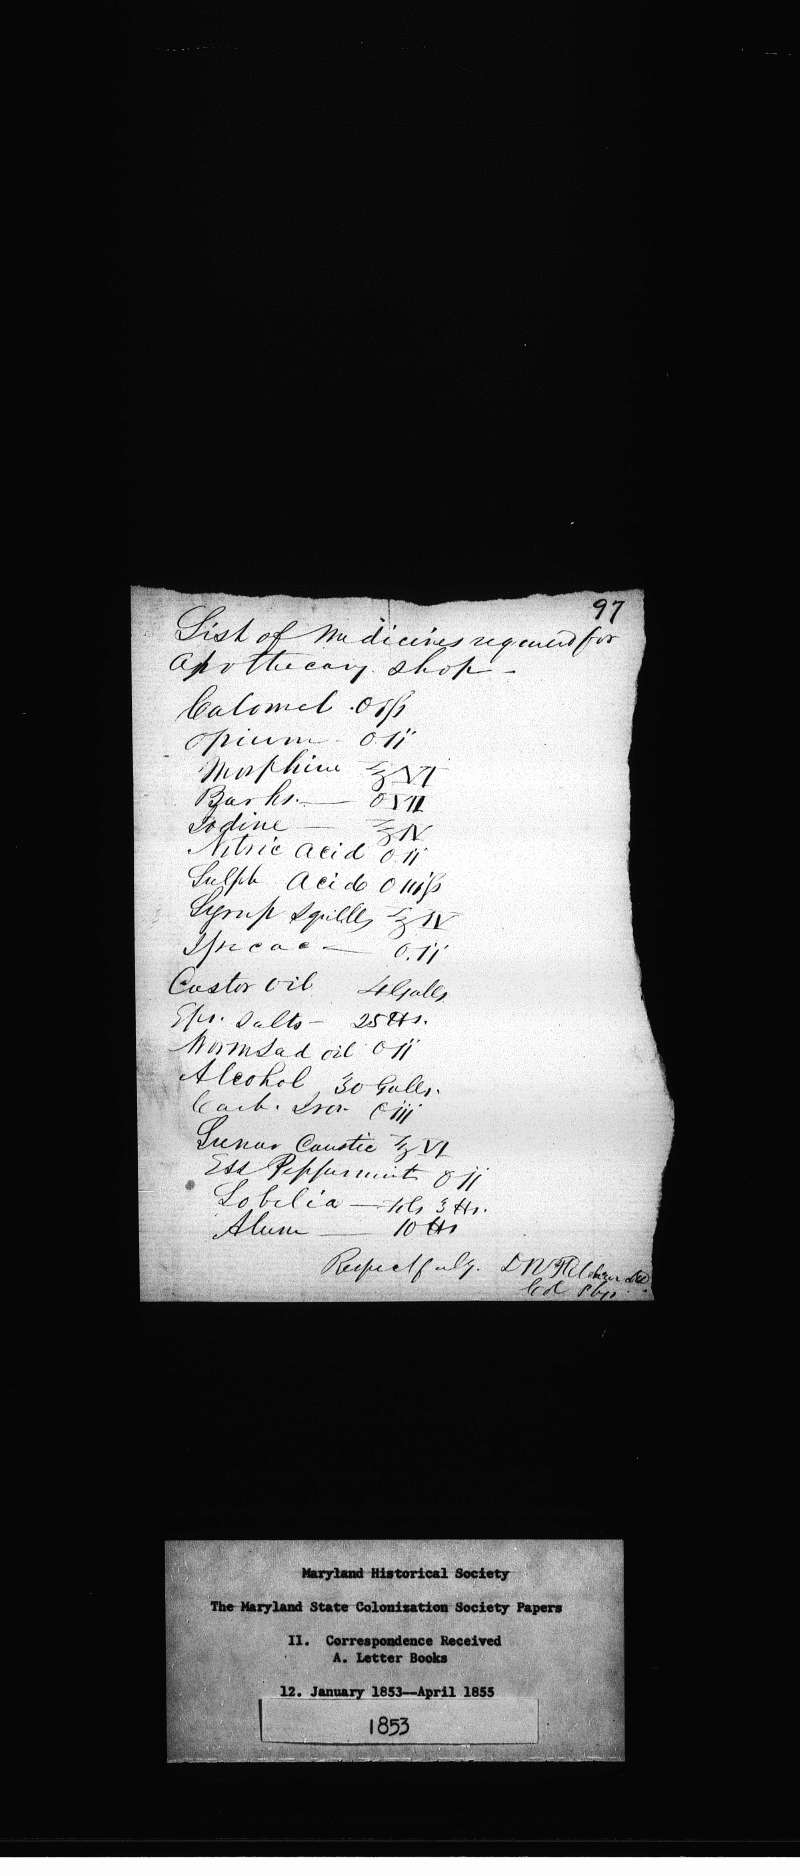 97
List of Medicines required for
Apothecary shop —
Calomel O ifs
Opium O ii
Morphine ℥ VI
Barks — O VII
Iodine — ℥ IV
Nitric Acid O ii
Sulph Acid O iiifs
Syrup Squills ℥ IV
Ipecac — O. ii
Castor Oil 4 Galls
Eps. Salts — 25 lbs.
Wormsad oil O ii
Alcohol 30 Galls.
Carb. Iron O iii
Lunar Caustic ℥ VI
Ess Peppermint O ii
Lobelia — 3 lbs.
Alum — 10 lbs
Respectfuly.
Col Phy.
Maryland Historical Society
The Maryland State Colonization Society Papers
II. Correspondence Received
A. Letter Books
12. January 1853--April 1855
1853